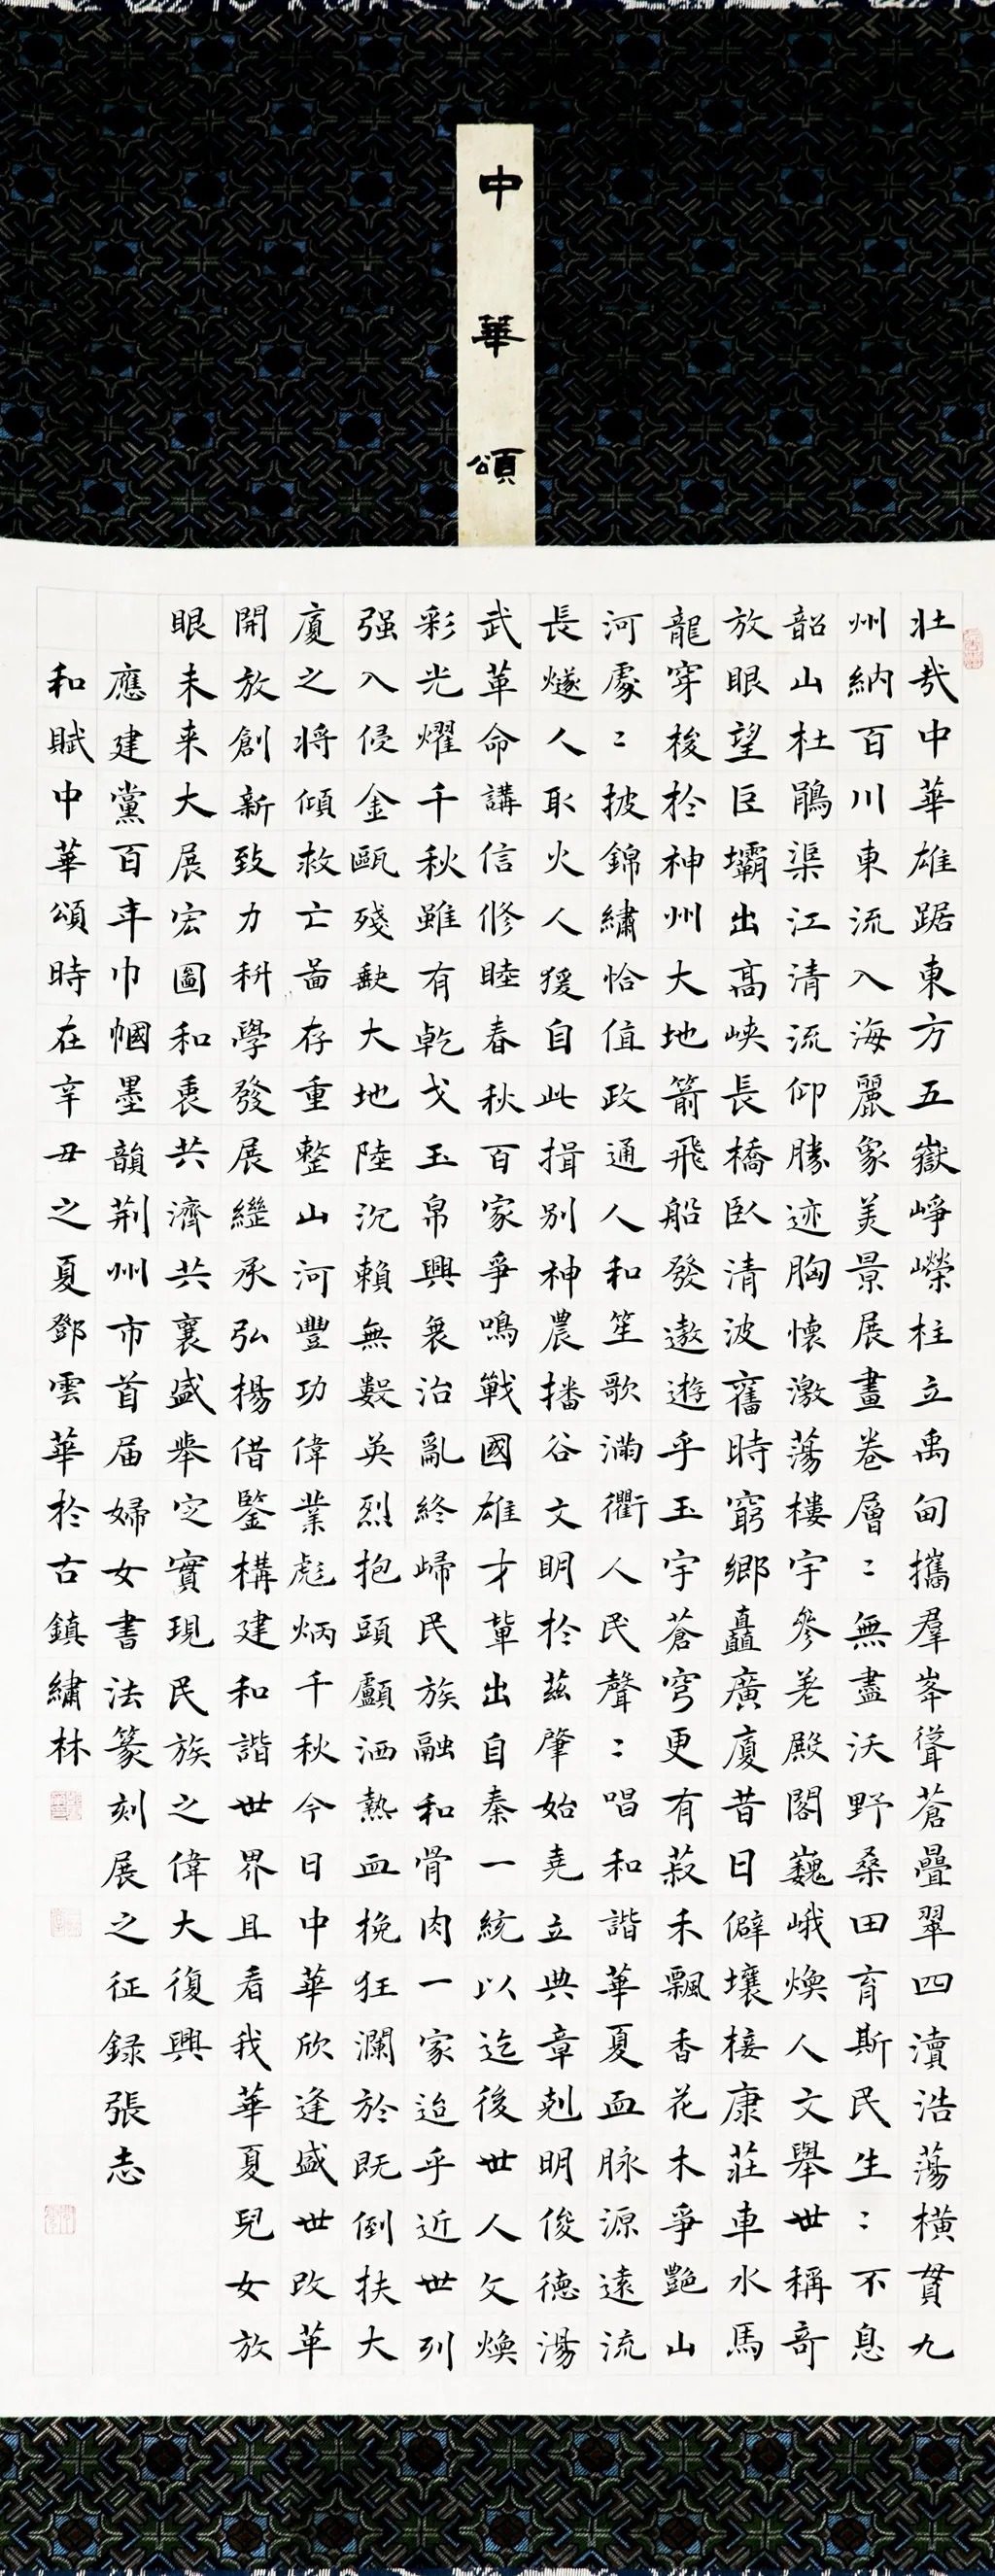 中華頌
壯哉中華雄踞東方五嶽崢嶸柱立禹甸攜羣峯聳蒼疊翠四瀆浩蕩橫貫九
州納百川東流入海麗象美景展畫卷層〻無盡沃野桑田育斯民生〻不息
韶山杜鵑渠江清流仰勝迹胸懷激蕩樓宇參差殿閣巍峨煥人文舉世稱奇
放眼望巨壩出高峽長橋臥清波舊時窮鄉矗廣廈昔日僻壤接康莊車水馬
龍穿梭於神州大地箭飛船發遨遊乎玉宇蒼穹更有菽禾飄香花木爭艷山
河處〻披錦繡恰值政通人和笙歌滿衢人民聲〻唱和諧華夏血脉源遠流
長燧人取火人猨自此揖別神農播谷文明於茲肇始堯立典章剋明俊德湯
武革命講信修睦春秋百家爭鳴戰國雄才輩出自秦一統以迄後世人文煥
彩光耀千秋雖有乾戈玉帛興衰治亂終歸民族融和骨肉一家迨乎近世列
强入侵金甌殘缺大地陸沉賴無數英烈抱頭顱洒熱血挽狂瀾於既倒扶大
廈之將傾救亡啚存重整山河豐功偉業彪炳千秋今日中華欣逢盛世改革
開放創新致力科學發展繼承弘楊借鑒構建和諧世界且看我華夏兒女放
眼未来大展宏圖和衷共濟共襄盛舉定實現民族之偉大復興
應建黨百年巾幗墨韻荆州市首届婦女書法篆刻展之征録張志
和賦中華頌時在辛丑之夏鄧雲華於古鎮繡林